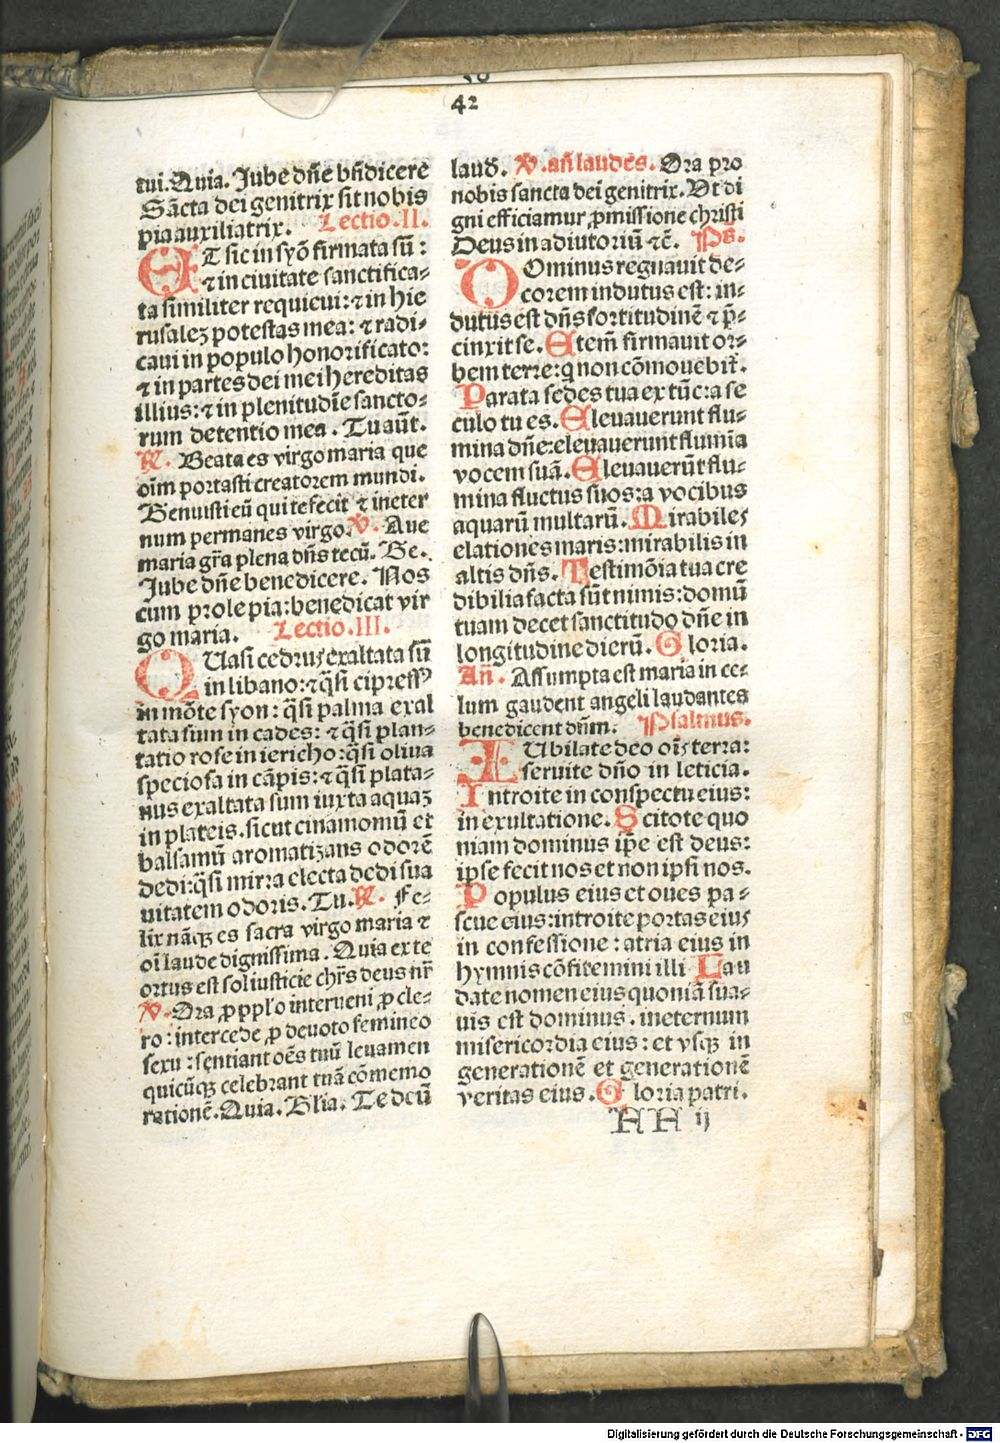 42
tui. Quia. Jube dn̄e bn̄dicere
Sācta dei genitrix sit nobis
pia auxiliatrix. Lectio. II.
ET sic in syō firmata sū :
⁊ in civitate sanctifica-
ta similiter requieui: ⁊ in hie
rusalez potestas mea: ⁊ radi-
caui in populo honorificato:
⁊ in partes dei mei hereditas
illius: ⁊ in plenitudīe sancto-
rum detentio mea . Tu aūt.
℟. Beata es virgo maria que
oīm portasti creatorem mundi.
Benuisti eū qui te fecit ⁊ in eter
num permanes virgo. ℣. Aue
maria gr̄a plena dn̄s tecū. Be.
Jube dn̄e benedicere. Nos
cum prole pia: benedicat vir
go maria. Lectio. III.
QUasi cedrus exaltata sū
in libano: ⁊ q̄si cipressꝰ
in mōte syon : q̄si palma exal
tata sum in cades: ⁊ q̄si plan-
tatio rose in iericho: q̄si oliua
speciosa in cāpis: ⁊ q̄si plata-
nus exaltata sum iuxta aquaz
in plateis. sicut cinamomū et
balsamū aromatizans odorē
dedi: q̄si mirra electa dedi sua
uitatem odoris. Tu. ℟. Fe-
lix nāqꝫ es sacra virgo maria ⁊
oī laude dignissima . Quia ex te
ortus est sol iusticie chr̄s deus nr̄
℣. Ora ꝓ ppl'o interueni ꝓ cle-
ro : intercede ꝓ deuoto femineo
sexu : sentiant oēs tuū leuamen
quicūqꝫ celebrant tuā cōmemo
rationē. Quia. Gl'ia. Te deū
laud. ℣. añ laudes. Ora pro
nobis sancta dei genitrix. Vt di
gni efficiamur ꝓmissione christi
Deus in adiutoriū ⁊c̄. Ps.
DOminus regnauit de-
corem indutus est: in-
dutus est dn̄s fortitudinē ⁊ p̄-
cinxit se. Etem̄ firmauit or-
bem terre: q̄ non cōmouebit̄.
Parata sedes tua ex tūc: a se
culo tu es. Eleuauerunt flu-
mina dn̄e: eleuauerunt flumīa
vocem suā. Eleuauerūt flu-
mina fluctus suos: a vocibus
aquarū multarū. Mirabiles
elationes maris: mirabilis in
altis dn̄s. Testimōia tua cre
dibilia facta sūt nimis: domū
tuam decet sanctitudo dn̄e in
longitudine dierū. Gloria.
Añ. Assumpta est maria in ce-
lum gaudent angeli laudantes
benedicent dn̄m. Psalmus.
IUbilate deo oīs terra:
seruite dn̄o in leticia.
Introite in conspectu eius:
in exultatione. Scitote quo
niam dominus ip̄e est deus:
ipse fecit nos et non ipsi nos.
Populus eius et oues pa-
scue eius: introite portas eius
in confessione : atria eius in
hymnis cōfitemini illi Lau
date nomen eius quoniā sua-
uis est dominus . in eternum
misericordia eius : et vsqꝫ in
generationē et generationē
veritas eius. Gloria patri.
HH ij
Digitalisierung gefördert durch die Deutsche Forschungsgemeinschaft - DFG